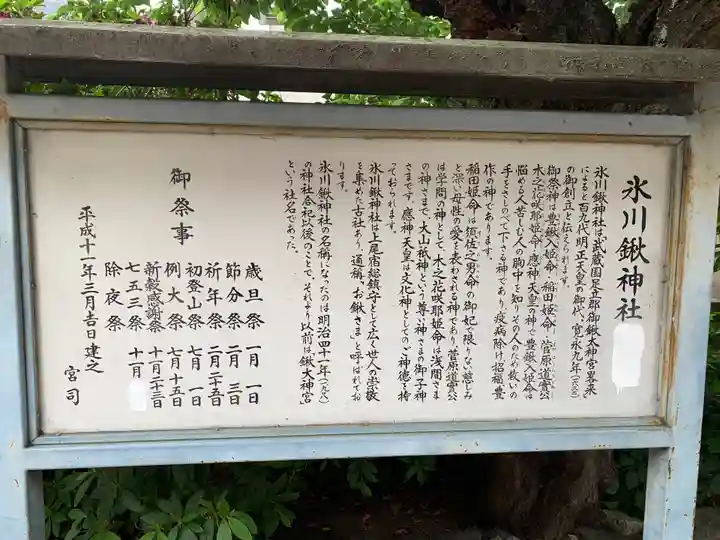 氷川鍬神社
氷川鍬神社は「武蔵国足立郡御鍬太神宮畧来」
によると百九代明正天皇の御代、寛永九年
の御創立と伝えられます。
御祭神は豊鍬入姫命 稲田姫命 菅原道真公
木之花咲耶姫命 應神天皇の神々、豊鍬入姫命は
悩める人苦しむ人の胸中を知りその人のため救いの
手をさしのべて下さる神であり、疫病除け、招福、豊
作の神であります。
稲田姫命は須佐之男命の御妃で限りない慈しみ
と深い母性の愛を表わされる神であり、菅原道真公
は学問の神として、木之花咲耶姫命は浅間さま
の神さまで、大山祇神という尊い神さまの御子神
さまです。應神天皇は文化神としてのご神徳を持
っておられます。
氷川鍬神社は上尾宿総鎮守として広く世人の崇敬
を集めた古社あり、通称、「お鍬さま」と呼ばれてお
ります。
氷川鍬神社の名称になったのは明治四十一年
の神社合祀以後のことで、それより以前は「鍬大神宮」
という社名であった。
御祭事
歳旦祭 一月一日
節分祭 二月三日
祈年祭 二月二十五
初登山祭 七月一日
例大祭 七月十五日
新穀感謝祭 十一月二十三日
七五三祭 十一月
除夜祭
平成十一年三月吉日建之
宮司